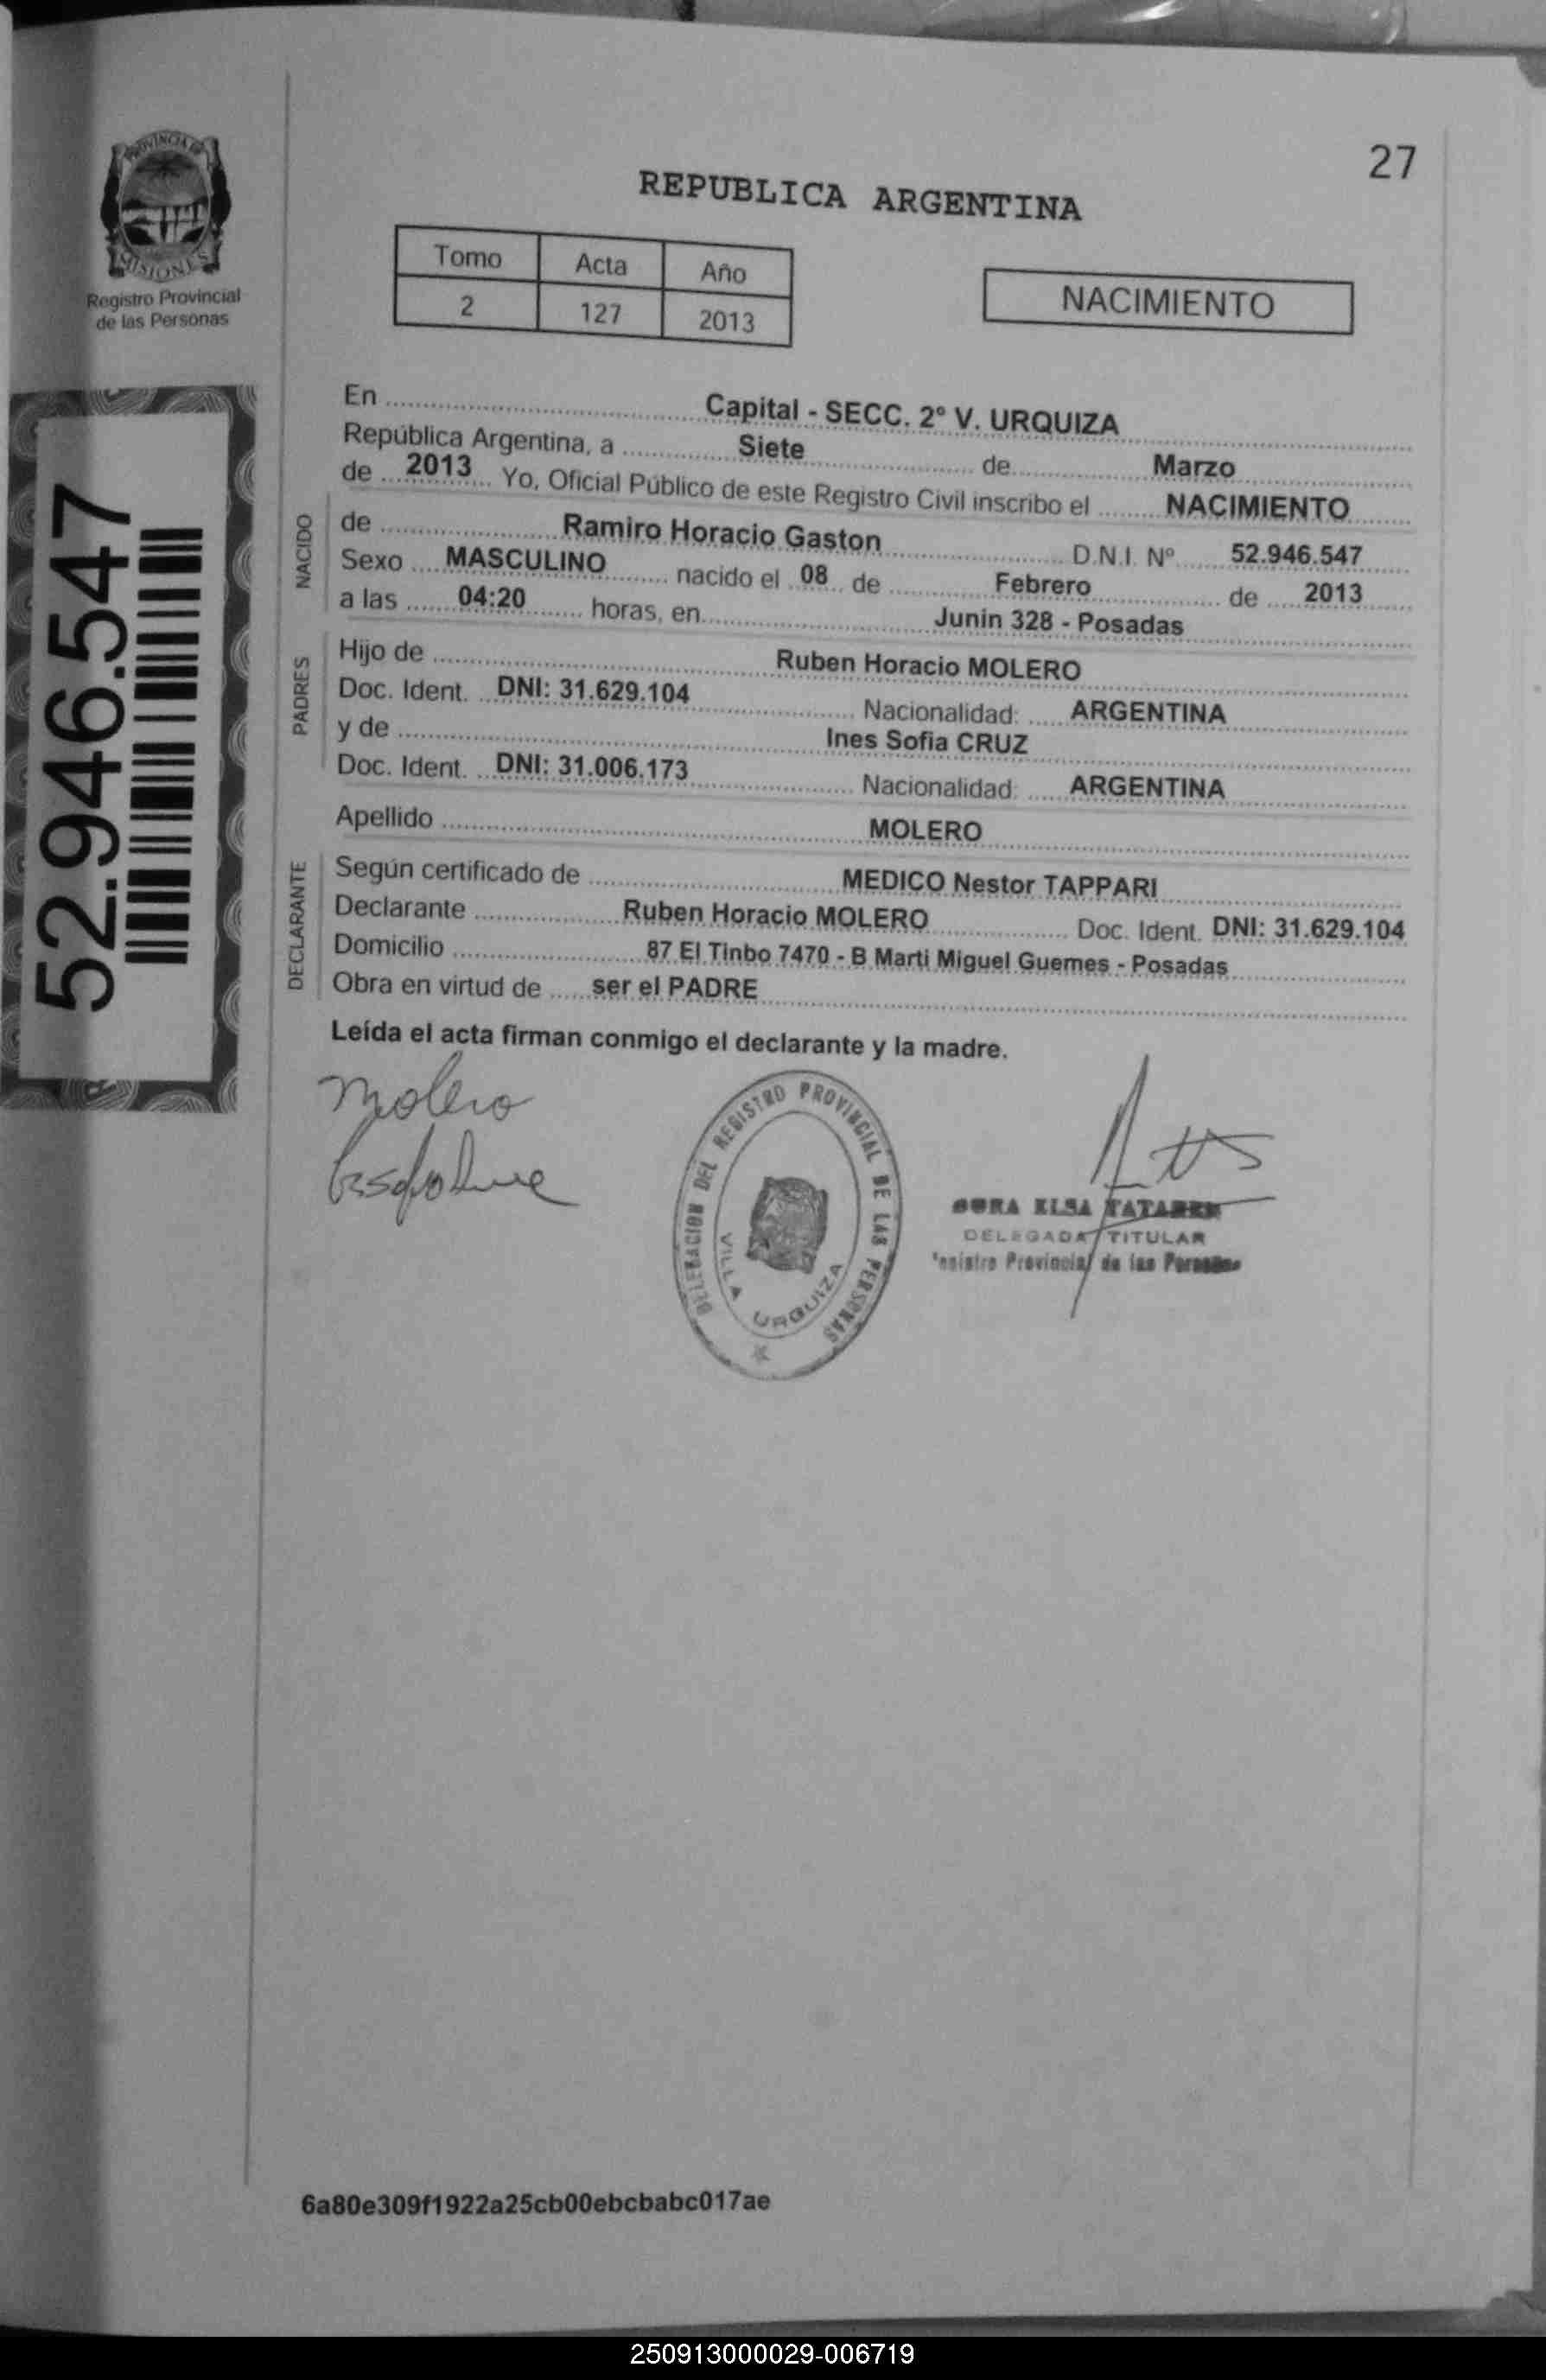 27
PROVINCIA DE
MISIONES
Registro Provincial
de las Personas
REPUBLICA ARGENTINA
Tomo Acta Año
2 127 2013
NACIMIENTO
52.946.547
En Capital - SECC. 2° V. URQUIZA
República Argentina, a Siete de Marzo
de 2013 Yo, Oficial Público de este Registro Civil inscribo el NACIMIENTO
NACIDO
de Ramiro Horacio Gaston D.N.I. Nº 52.946.547
Sexo MASCULINO nacido el 08 de Febrero de 2013
a las 04:20 horas, en Junin 328 - Posadas
PADRES
Hijo de Ruben Horacio MOLERO
Doc. Ident. DNI: 31.629.104 Nacionalidad: ARGENTINA
y de Ines Sofia CRUZ
Doc. Ident. DNI: 31.006.173 Nacionalidad: ARGENTINA
Apellido MOLERO
DECLARANTE
Según certificado de MEDICO Nestor TAPPARI
Declarante Ruben Horacio MOLERO Doc. Ident. DNI: 31.629.104
Domicilio 87 El Tinbo 7470 - B Marti Miguel Guemes - Posadas
Obra en virtud de ser el PADRE
Leída el acta firman conmigo el declarante y la madre.
Molero
DELEGACION DEL REGISTRO PROVINCIAL DE LAS PERSONAS
VILLA URQUIZA
ELSA
DELEGADA TITULAR
Provincial de las Personas
6a80e309f1922a25cb00ebcbabc017ae
250913000029-006719